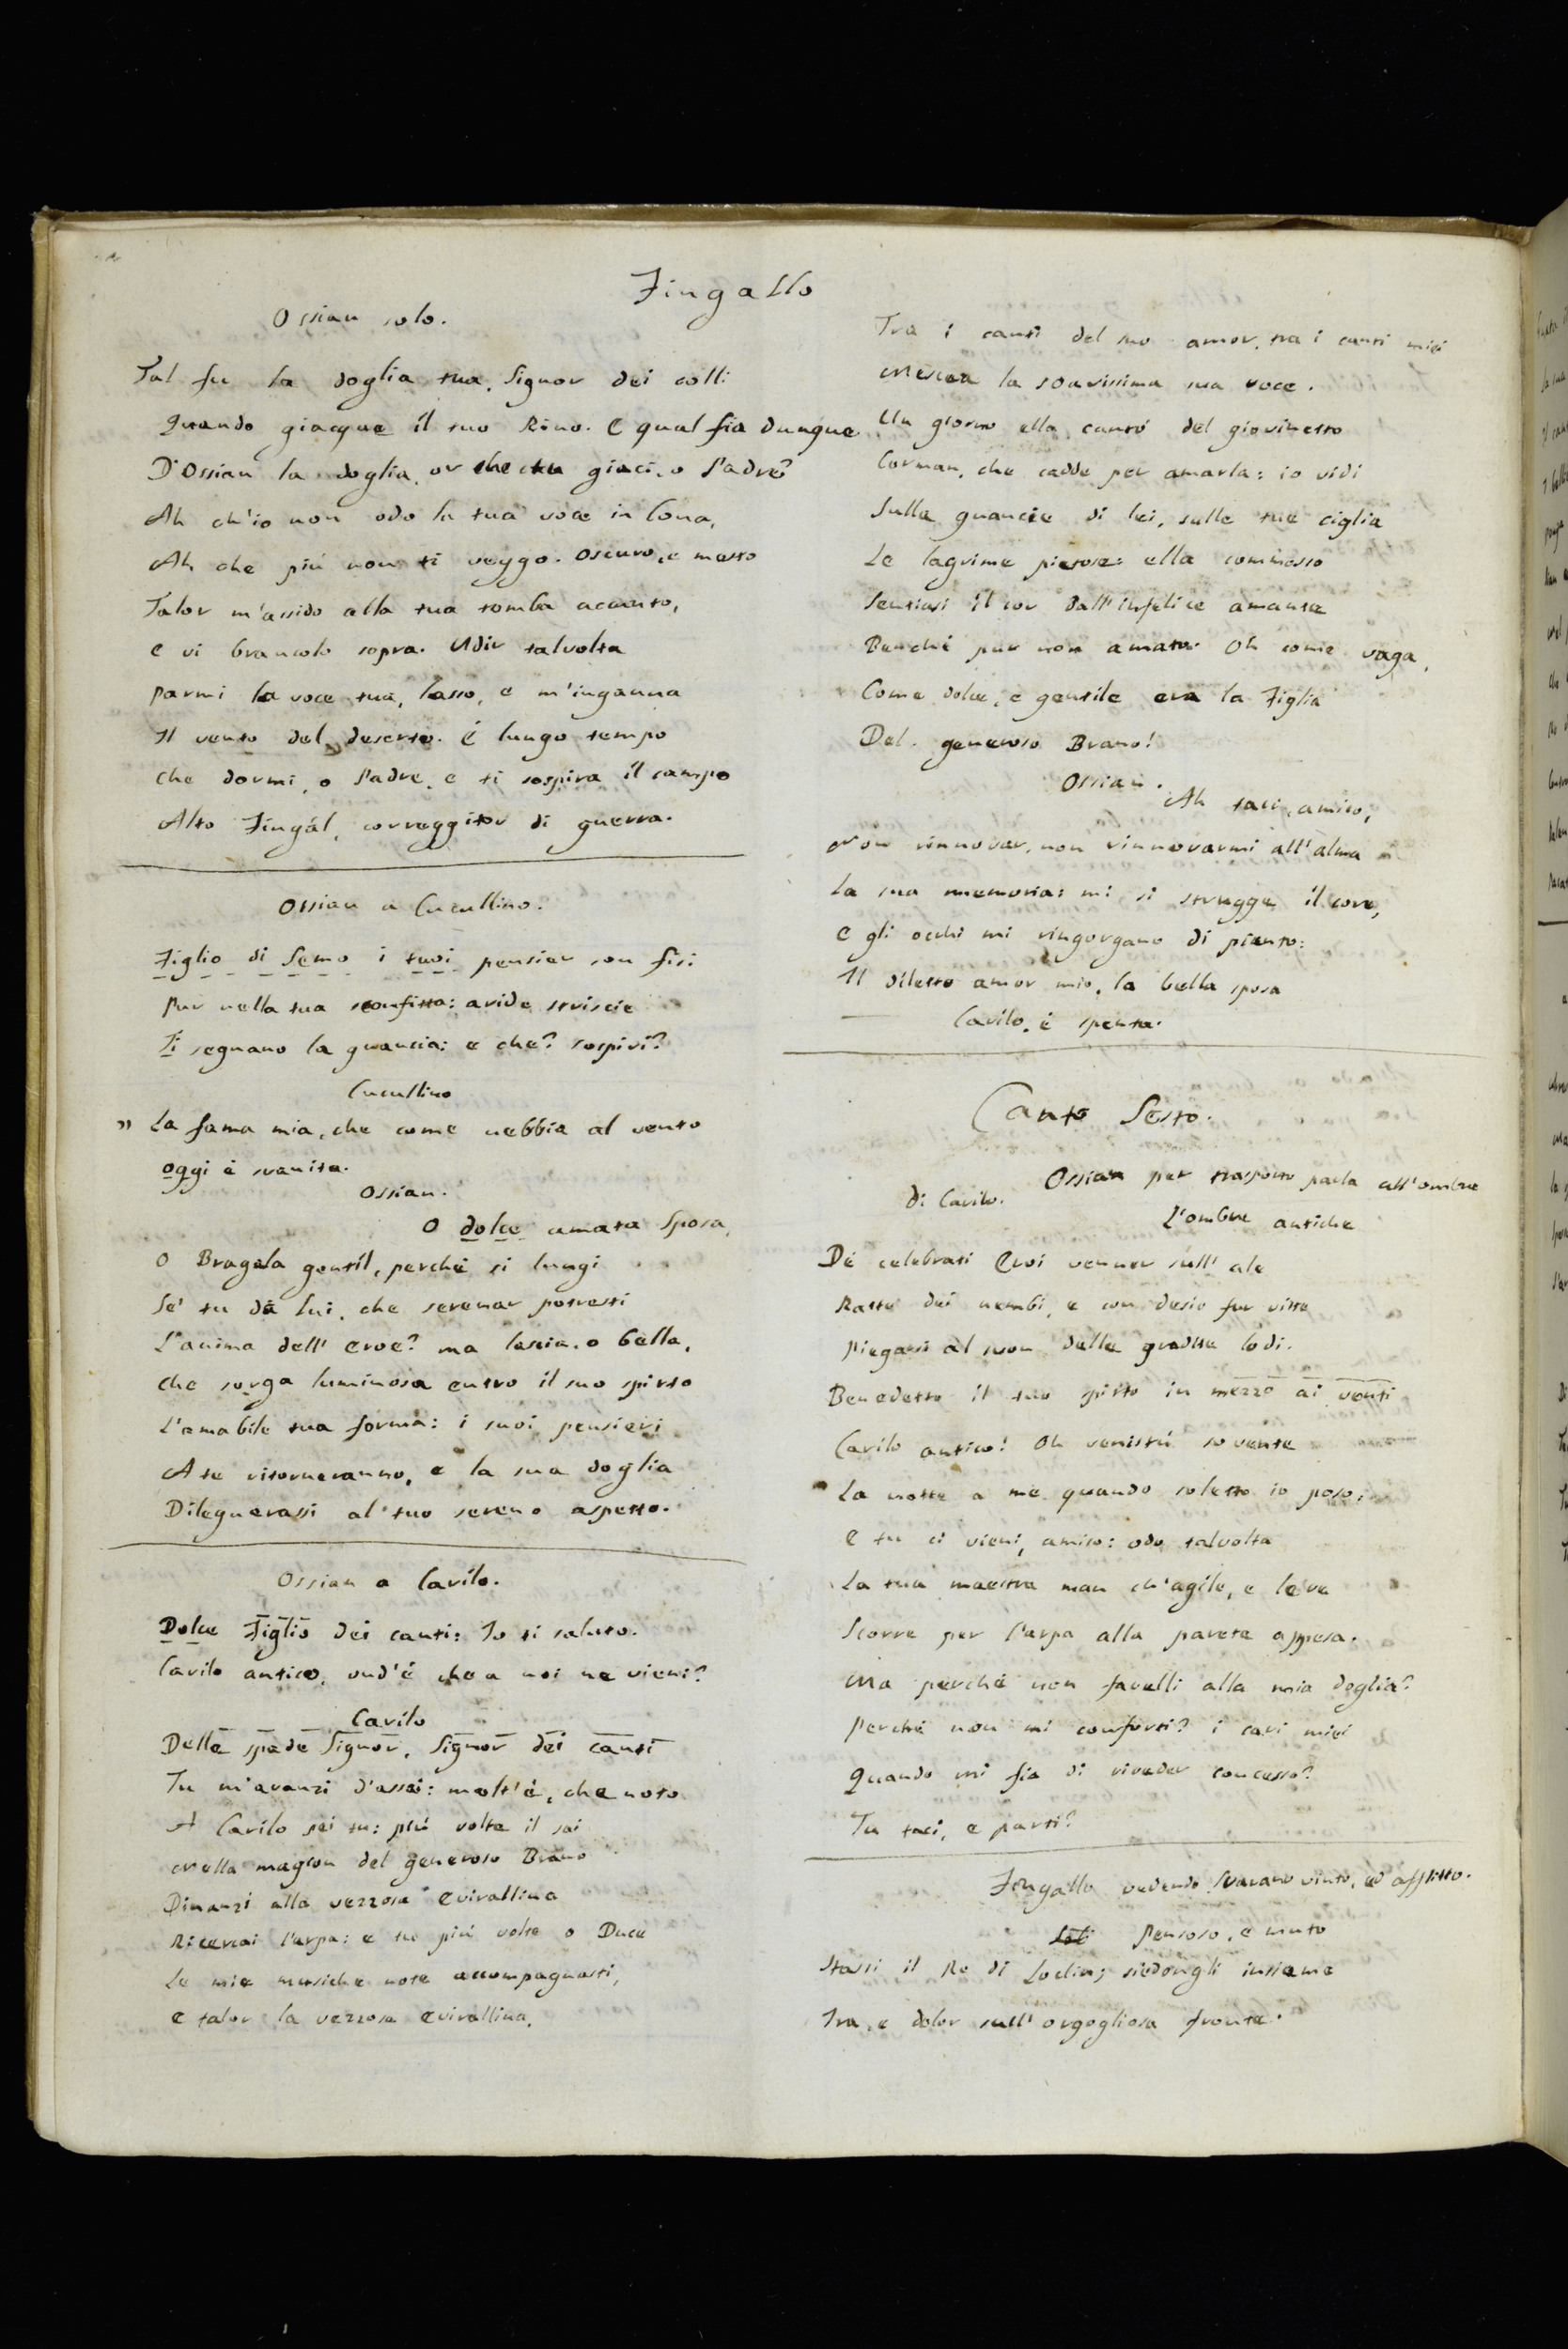 Fingallo
Ossian solo.
Tal fu la doglia tua, Signor dei colli
Quando giacque il tuo Rino. E qual fia dunque
D'Ossian la doglia, or che tu giaci, o Padre?
Ah ch'io non odo la tua voce in Cona,
Ah che più non ti veggo. Oscuro, e mesto
Talor m'assido alla tua tomba accanto,
E vi brancolo sopra. Udir talvolta
Parmi la voce tua, lasso, e m'inganna
Il vento del deserto. È lungo tempo
Che dormi, o Padre, e ti sospira il campo
Alto Fingál, correggitor di guerra.
Ossian a Cucullino.
Figlio di Semo i tuoi pensier son fisi
Pur nella tua sconfitta: aride striscie
Ti segnano la guancia: e che? sospiri?
Cucullino
" La fama mia, che come nebbia al vento
oggi è svanita.
Ossian.
O dolce amata Sposa,
O Bragela gentil, perchè si lungi
Se' tu da lui, che serenar potresti
L'anima dell' eroe? ma lascia, o bella,
Che sorga luminosa entro il suo spirto
L'amabile tua forma: i suoi pensieri
A te ritorneranno, e la sua doglia
Dileguerassi al tuo sereno aspetto.
Ossian a Carilo.
Dolce Figlio dei canti: Io ti saluto.
Carilo antico, ond'è che a noi ne vieni?
Carilo
Delle spade Signor, Signor dei canti
Tu m'avanzi d'assai: molt'è, che noto
A Carilo sei tu: più volte il sai
Nella magion del generoso Brano
Dinanzi alla vezzosa Evirallina
Ricercai l'arpa: e tu più volte o Duce
Le mie musiche note accompagnasti,
E talor la vezzosa Evirallina,
Tra i canti del suo amor, tra i canti miei
Mescea la soavissima sua voce.
Un giorno ella cantò del giovinetto
Corman, che cadde per amarla: io vidi
Sulle guancie di lei, sulle tue ciglia
Le lagrime pietose: ella commosso
Sentiasi il cor dall'infelice amante
Benchè pur non amato. Oh come vaga,
Come dolce, e gentile era la Figlia
Del generoso Brano!
Ossian.
Ah taci, amico,
Non rinnovar, non rinnovarmi all'alma
La sua memoria: mi si strugge il core,
E gli occhi mi ringorgano di pianto:
Il diletto amor mio, la bella sposa
Carilo, è spenta.
Canto Sesto.
Ossian per trasporto parla all'ombra
di Carilo.
L'ombre antiche
De' celebrati Eroi venner sull' ale
Ratte dei nembi, e con desio fur viste
Piegarsi al suon delle gradite lodi.
Benedetto il tuo spirto in mezzo ai venti
Carilo antico! Oh venistù sovente
La notte a me quando soletto io poso.
E tu ci vieni, amico: odo talvolta
La tua maestra man ch'agile, e leve
Scorre per l'arpa alla parete appesa.
Ma perchè non favelli alla mia doglia?
Perchè non mi conforti? i cari miei
Quando mi fia di riveder concesso?
Tu taci, e parti?
Fingallo vedendo Svarano vinto, ed afflitto.
Pensoso, e muto
Stassi il Re di Loclin; siedongli insieme
Ira, e dolor sull' orgogliosa fronte.